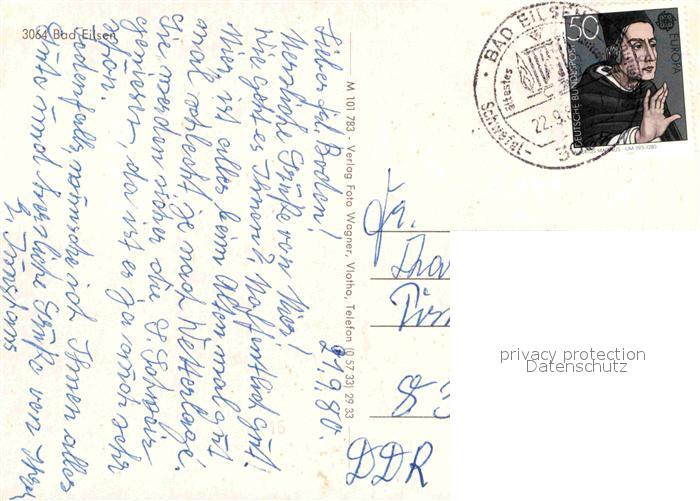 3064 Bad Eilsen
21.9.80.
Liebes Frl. Boden!
Herzliche Grüße von hier!
Wie geht es Ihnen? Hoffentlich gut!
Hier ist alles beim Alten mal gut
mal schlecht je nach Wetterlage.
Sie werden sicher die
genießen, da ist es ja auch sehr
schön.
Jedenfalls wünsche ich Ihnen alles
Gute und herzliche Grüße von Ihrer
M 101 783 - Verlag Foto Wagner, Vlotho, Telefon (0 57 33) 29 33
BAD EILSEN
22.9.
50
DEUTSCHE BUNDESPOST
EUROPA
CEPT
UM 1193-1280
DDR
privacy protection
Datenschutz